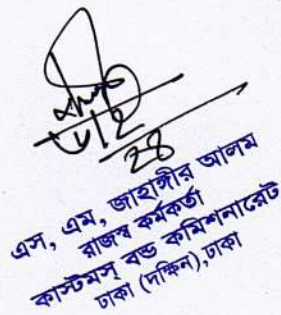 ৮/২
২৪
এস, এম, জাহাঙ্গীর আলম
রাজস্ব কর্মকর্তা
কাস্টমস্ বন্ড কমিশনারেট
ঢাকা (দক্ষিন),ঢাকা